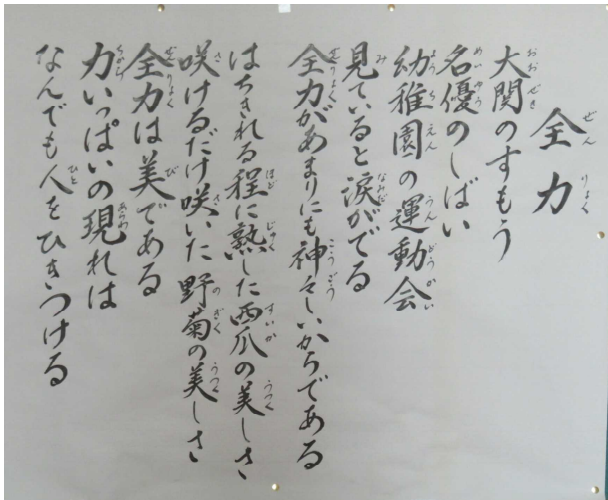 全力
大関のすもう
名優のしばい
幼稚園の運動会
見ていると涙がでる
全力があまりにも神々しいからである
はちきれる程に熟した西瓜の美しさ
咲けるだけ咲いた野菊の美しさ
全力は美である
力いっぱいの現れは
なんでも人をひきつける